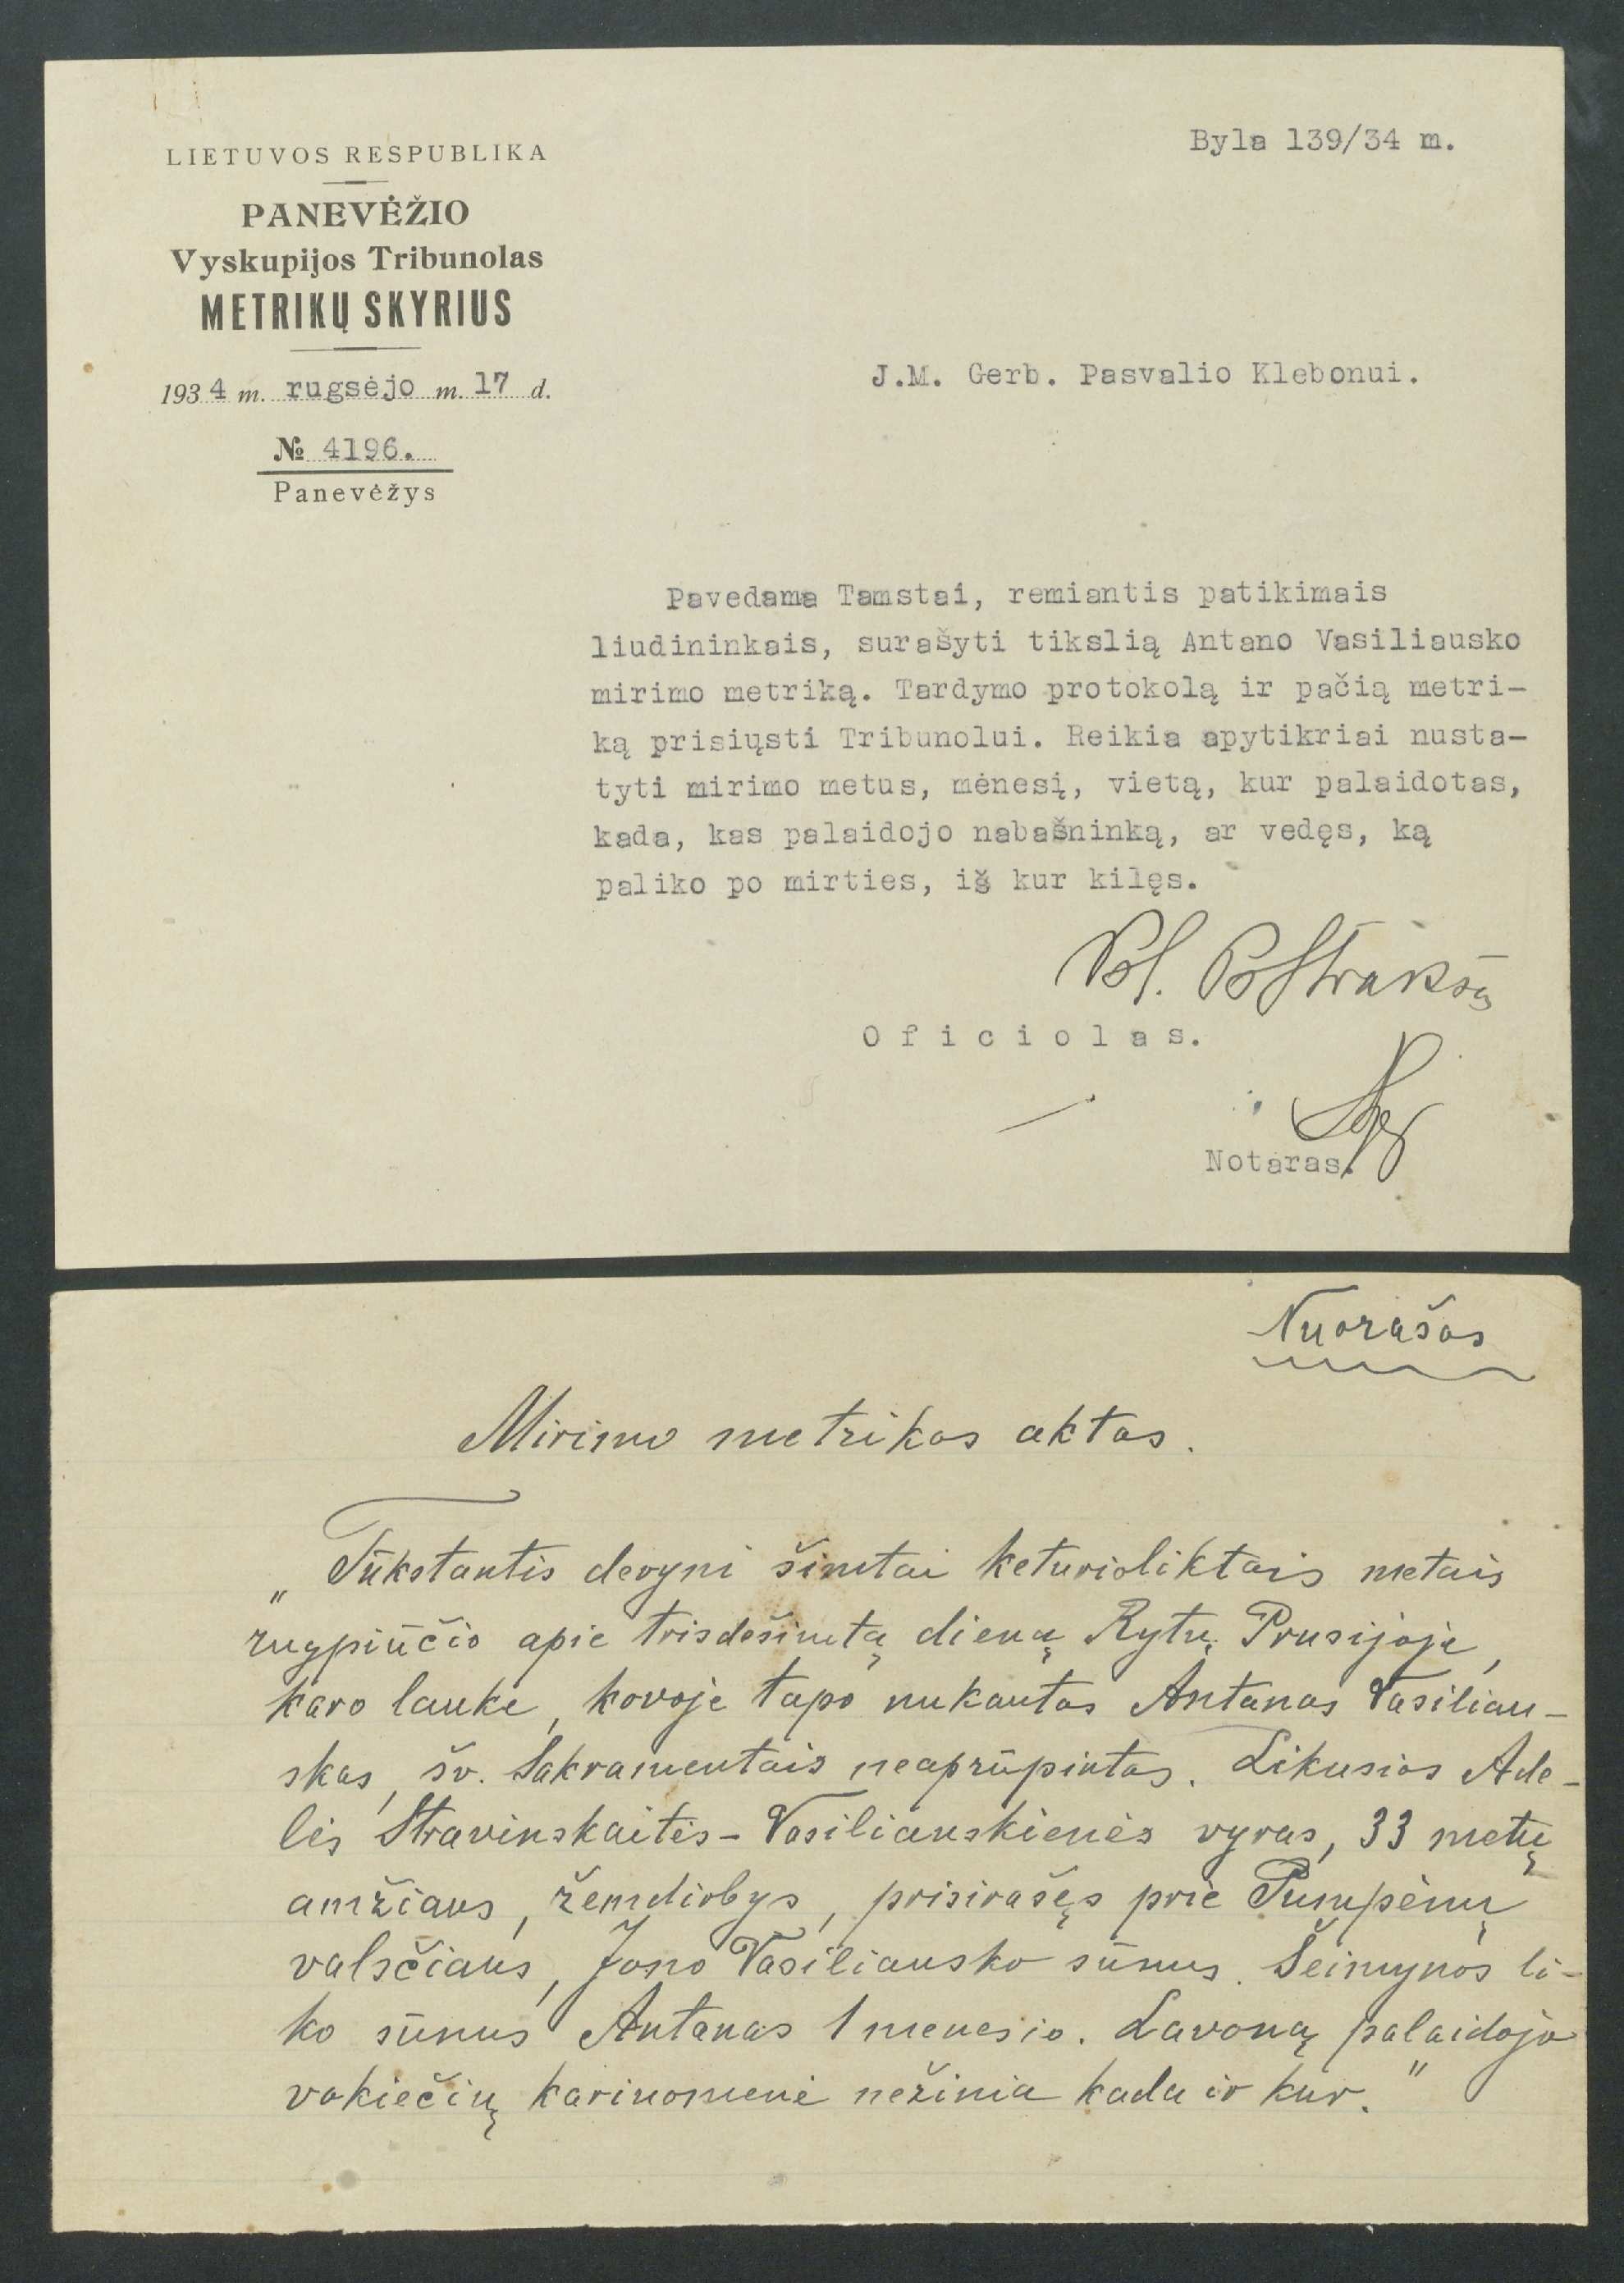 LIETUVOS RESPUBLIKA
PANEVĖŽIO
Vyskupijos Tribunolas
METRIKŲ SKYRIUS
1934 m. rugsėjo m. 17 d.
№ 4196.
Panevėžys
Byla 139/34 m.
J.M. Gerb. Pasvalio Klebonui.
Pavedama Tamstai, remiantis patikimais
liudininkais, surašyti tikslią Antano Vasiliausko
mirimo metriką. Tardymo protokolą ir pačią metri-
ką prisiųsti Tribunolui. Reikia apytikriai nusta-
tyti mirimo metus, mėnesį, vietą, kur palaidotas,
kada, kas palaidojo nabašninką, ar vedęs, ką
paliko po mirties, iš kur kilęs.
Oficiolas.
Notaras.
Nuorašas
Mirimo metrikos aktas.
„Tūkstantis devyni šimtai keturioliktais metais
rugpiūčio apie trisdešimtą dieną Rytų Prusijoje,
karo lauke, kovoje tapo nukautas Antanas Vasiliau-
skas, šv. Sakramentais neaprūpintas. Likusios Ade-
lės Stravinskaitės-Vasiliauskienės vyras, 33 metų
amžiaus, žemdirbys, prisirašęs prie Pumpėnų
valsčiaus, Jono Vasiliausko sūnus. Šeimynos li-
ko sūnus Antanas 1 menesio. Lavoną palaidojo
vokiečių kariuomenė nežinia kada ir kur."